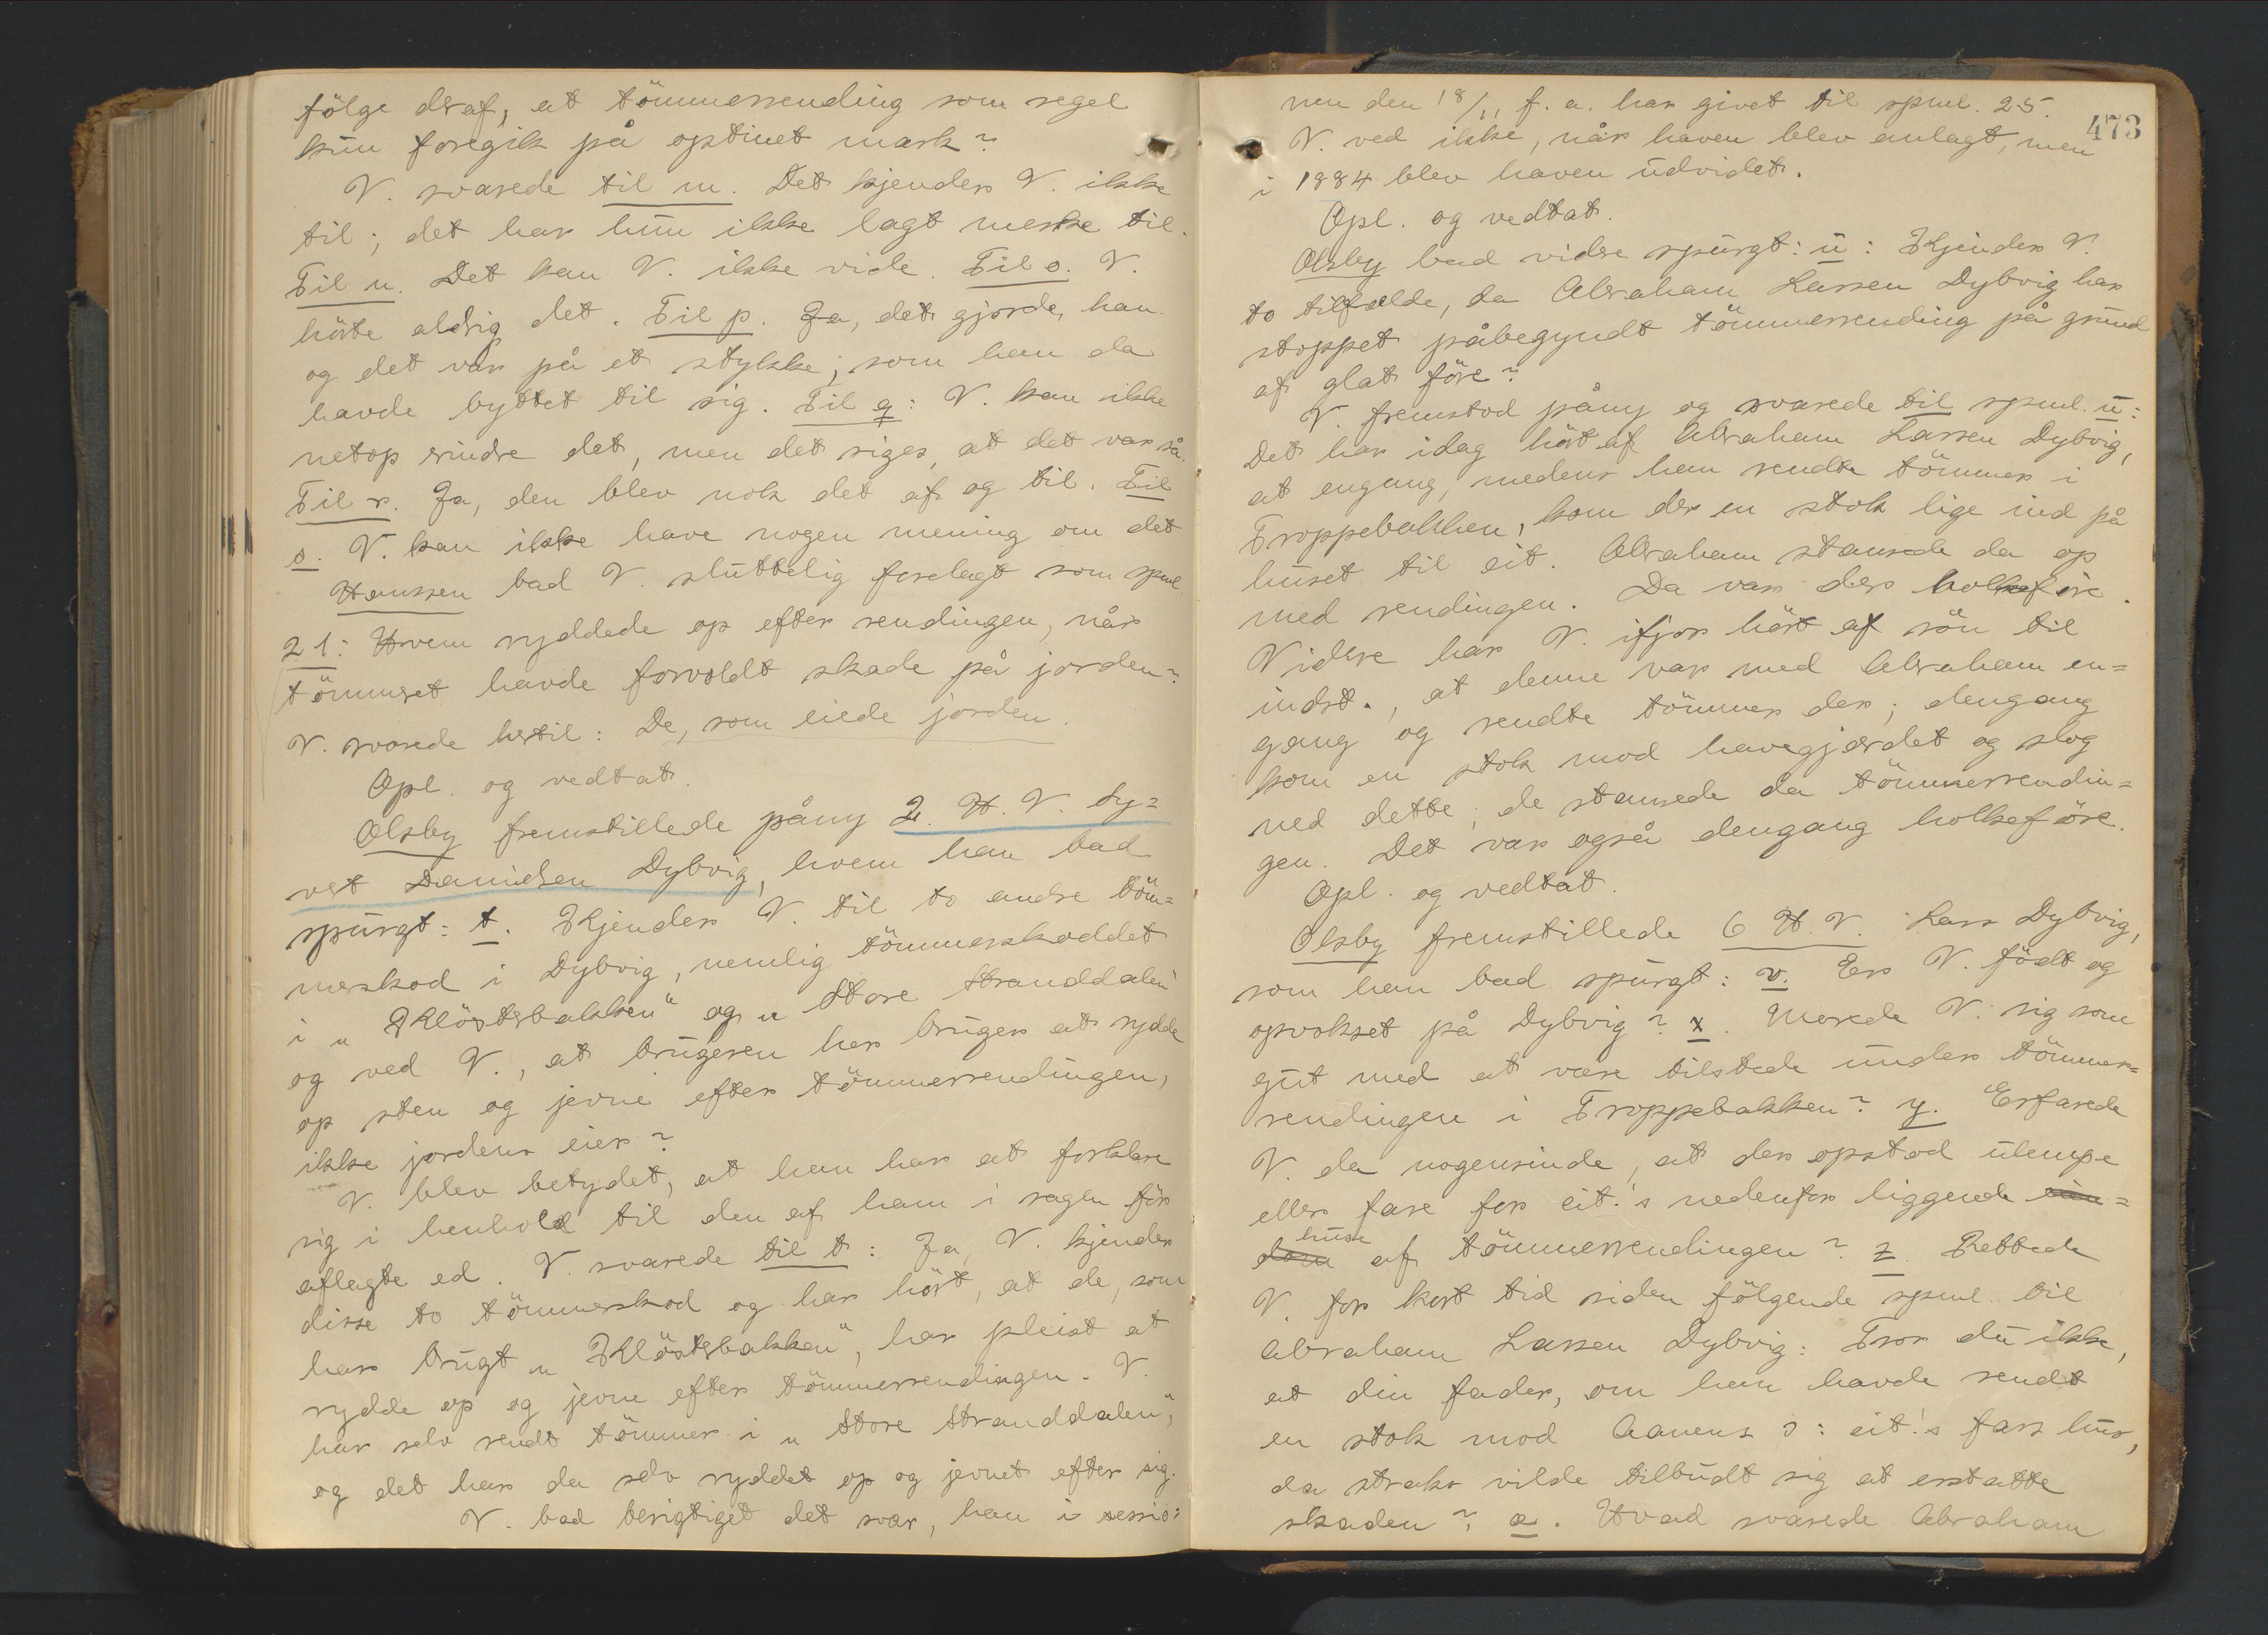 følge deraf, at tömmerrending som regel
kun foregik på optinet mark?
V. svarede til m. Det kjender V. ikke
til; det har hun ikke lagt merke til.
Til n. Det kan V. ikke vide. Til o. V.
hörte aldrig det. Til p. Ja, det gjorde han
og det var på et stykke, som han da
havde byttet til sig. Til q: V. kan ikke
netop erindre det, men det siges, at det var så.
Til r. Ja, den blev nok det af og til. Til
s. V. kan ikke have nogen mening om det
Hanssen bad V. sluttelig forelagt som spml.
21: Hvem ryddede op efter rendingen, når
tömmeret havde forvoldt skade på jorden?
V. svarede hertil: De, som eiede jorden.
Opl. og vedtat.
Olsby fremstillede påny 2. H. V. Sy=
vert Danielsen Dybvig, hvem han bad
spurgt: t. Kjender V. til to andre töm=
merskod i Dybvig, nemlig tömmerskoddet
i "Klösterbakken" og "Store Stranddalen"
og ved V., at brugeren her bruger at rydde
op sten og jevne efter tömmerrendingen,
ikke jordens eier?
V. blev betydet, at han har at forklare
sig i henhold til den af ham i sagen för
aflagte ed. V. svarede til t: Ja, V. kjender
disse to tömmerskod og har hört, at de, som
har brugt "Klösterbakken", har pleiet at
rydde op og jevne efter tömmerrendingen. V.
har selv rendt tömmer i "Store Stranddalen",
og det har da selv ryddet op og jevnet efter sig.
V. bad berigtiget det svar, han i sessio=
473
nen den 18/11 f. a. har givet til spml. 25.
V. ved ikke, når haven blev anlagt, men
i 1884 blev haven udvidet.
Opl. og vedtat.
Olsby bad videre spurgt: u: Kjender V.
to tilfælde, da Abraham Larsen Dybvig har
stoppet påbegyndt tömmerrending på grund
af glat före?
V. fremstod påny og svarede til spml. u:
Det har idag hört af Abraham Larsen Dybvig,
at engang, medens han rendte tömmer i
Troppebakken, kom der en stok lige ind på
huset til cit. Abraham stansede da op
med rendingen. Da var der holkeföre.
Videre har V. ifjor hört af sön til
indst., at denne var med Abraham en=
gang og rendte tömmer der; dengang
kom en stok mod havegjerdet og slog
ned dette; de stansede da tömmerrendin=
gen. Det var også dengang holkeföre.
Opl. og vedtat.
Olsby fremstillede 6 H. V. Lars Dybvig,
som han bad spurgt: v. Er V. födt og
opvokset på Dybvig? x. Morede V. sig som
gut med at være tilstede under tömmer=
rendingen i Troppebakken? y. Erfarede
V. da nogensinde, at der opstod ulempe
eller fare for cit.'s nedenfor liggende ein=
dom huse af tömmerrendingen? z. Rettede
V. for kort tid siden fölgende spml. til
Abraham Larsen Dybvig: Tror du ikke,
at din fader, om han havde rendt
en stok mod Aanens ɔ: cit.'s fars hus,
da straks vilde tilbudt sig at erstatte
skaden? æ. Hvad svarede Abraham